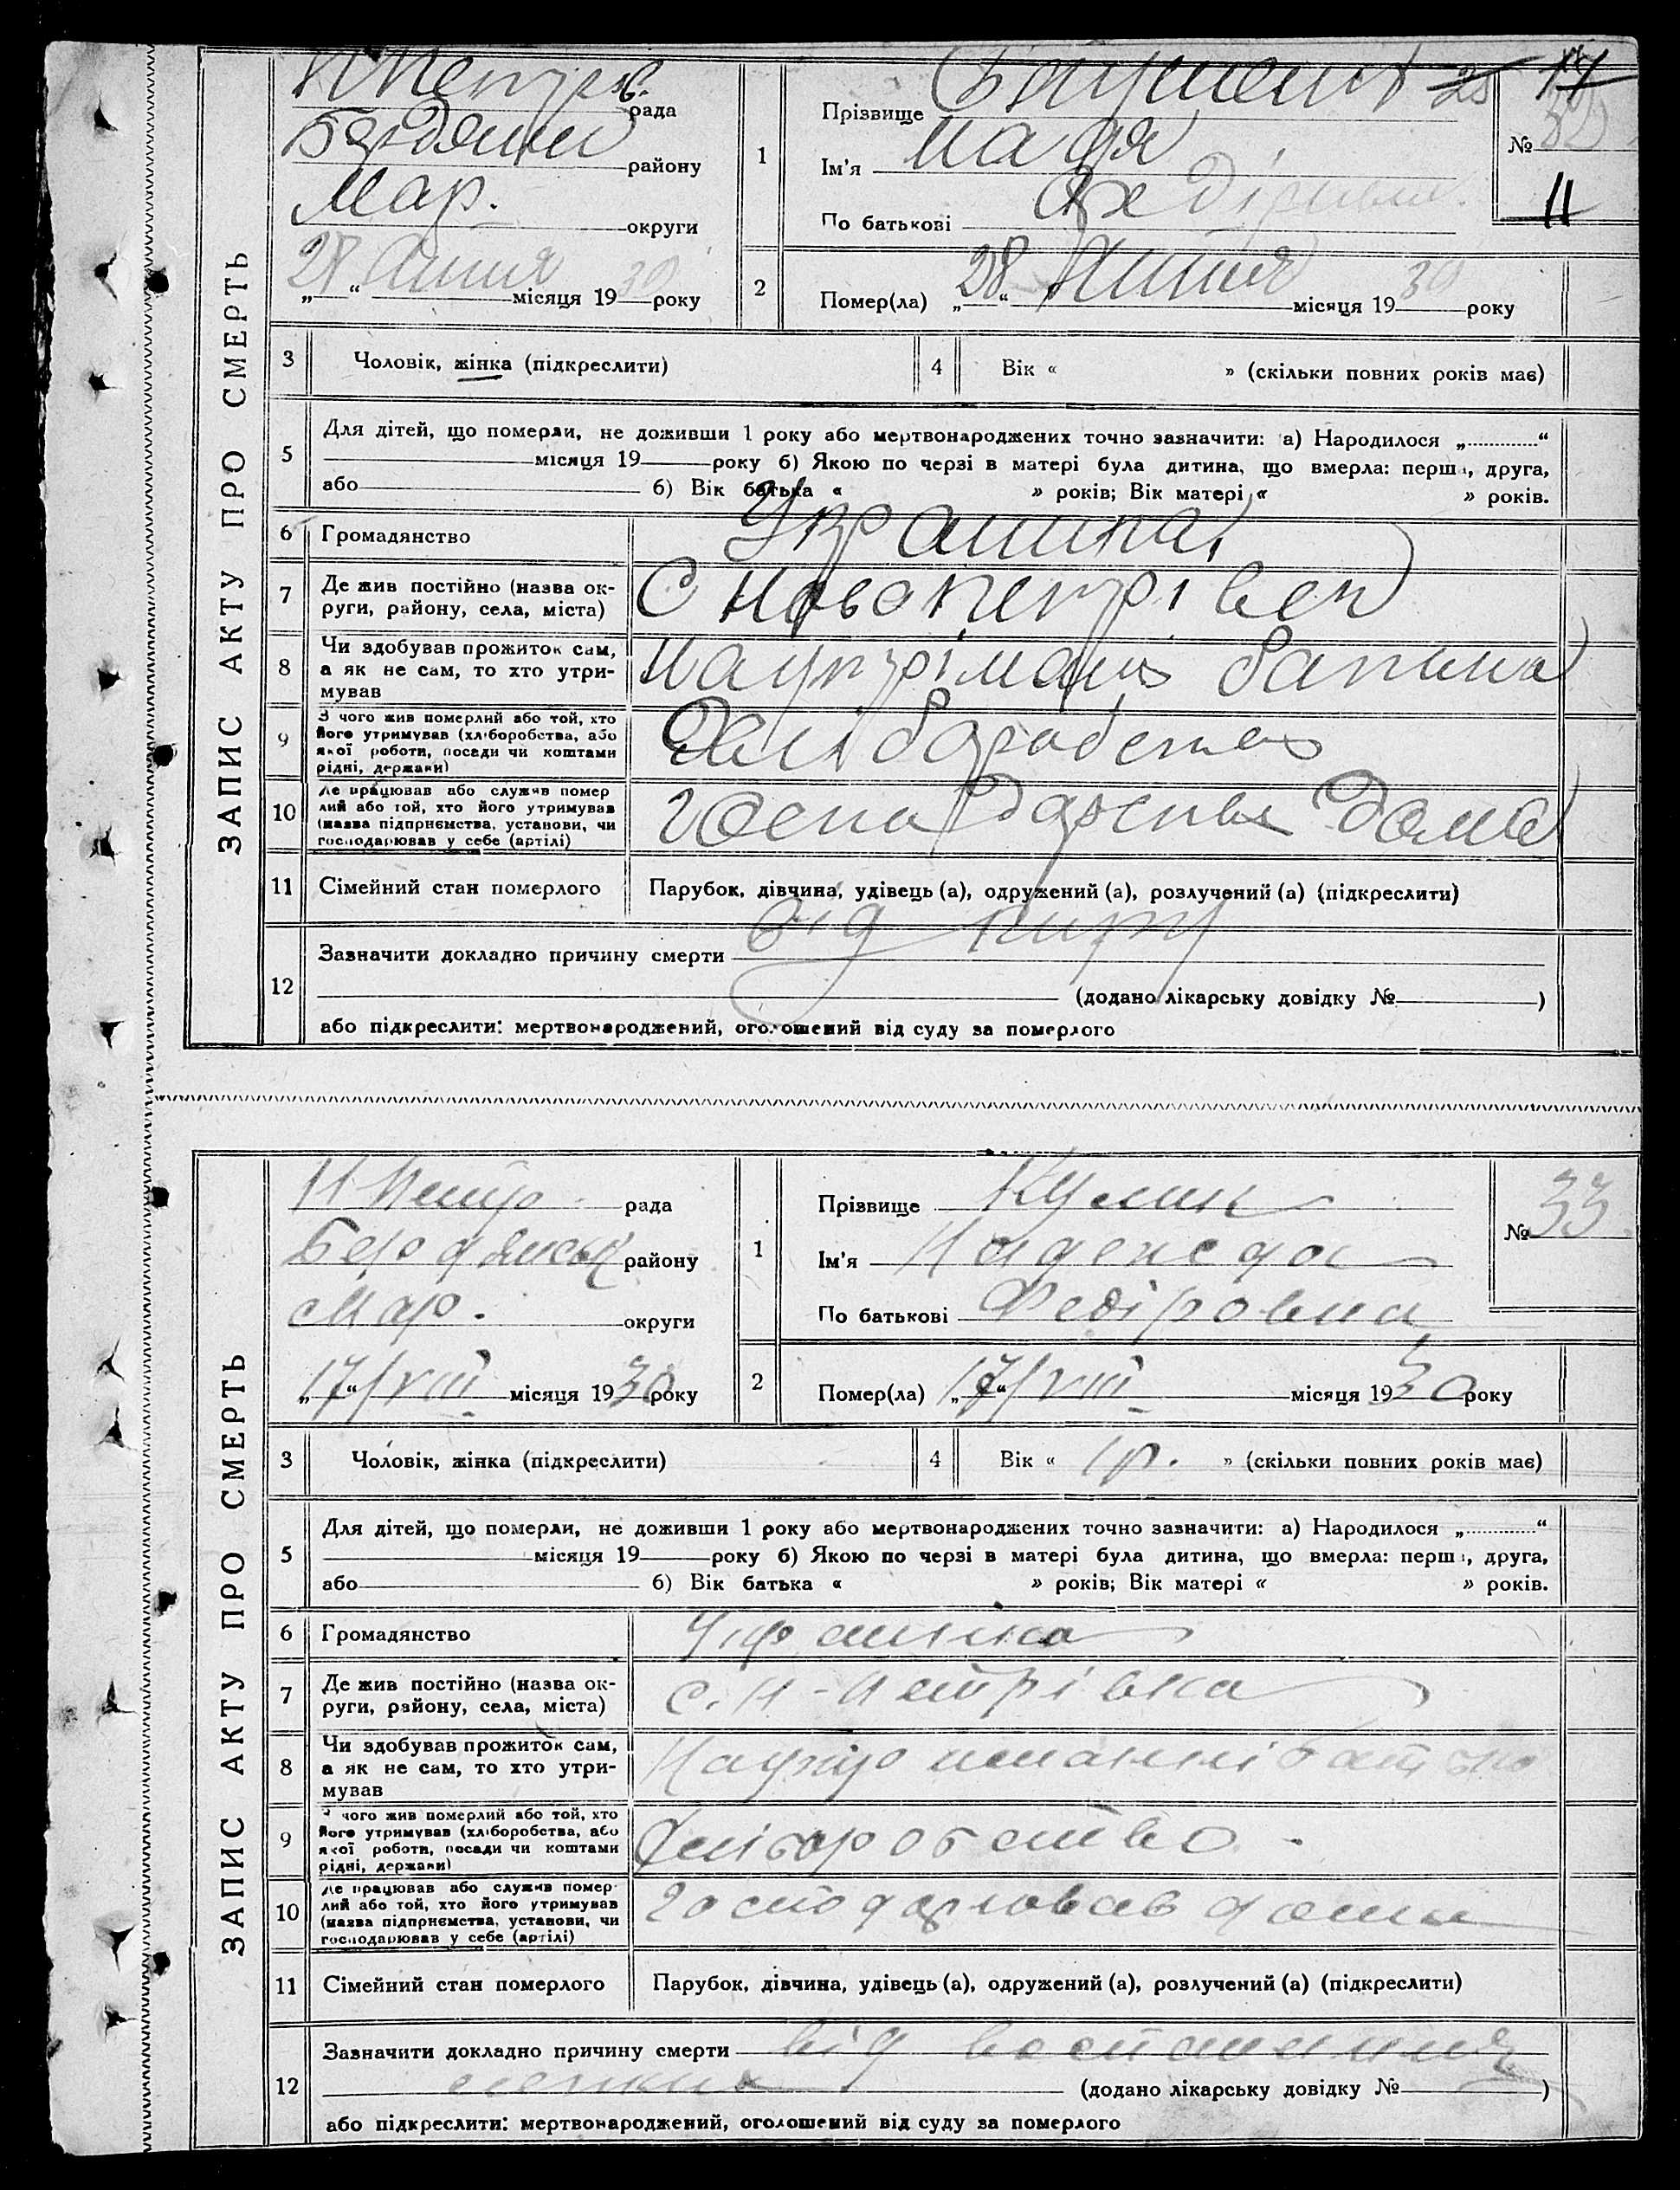 ЗАПИС АКТУ ПРО СМЕРТЬ
рада
району
Мар. округи
28 місяця 1930 року
1
Прізвище
Ім'я Надя
По батькові
№ 32
11
2
Помер(ла) „28“ місяця 1930 року
3 Чоловік, жінка (підкреслити)
4 Вік « » (скільки повних років має)
5 Для дітей, що померли, не доживши 1 року або мертвонароджених точно зазначити: а) Народилося „ “
місяця 19 року б) Якою по черзі в матері була дитина, що вмерла: перша, друга,
або б) Вік батька « » років; Вік матері « » років.
6 Громадянство Украинка
7 Де жив постійно (назва ок-
руги, району, села, міста)
С Новопетрівка
8 Чи здобував прожиток сам,
а як не сам, то хто утри-
мував
батька
9 З чого жив померлий або той, хто
його утримував (хліборобства, або
якої роботи, посади чи коштами
рідні, держави)
10 Де працював або служив помер
лий або той, хто його утримував
(назва підприємства, установи, чи
господарював у себе (артілі)
дома
11 Сімейний стан померлого Парубок, дівчина, удівець (а), одружений (а), розлучений (а) (підкреслити)
12 Зазначити докладно причину смерти від
(додано лікарську довідку № )
або підкреслити: мертвонароджений, оголошений від суду за померлого
ЗАПИС АКТУ ПРО СМЕРТЬ
Н Петро рада
Бердянськ району
Мар. округи
„17“/VIII місяця 1930 року
1
Прізвище Кулик
Ім'я Надежда
По батькові Федіровна
№ 33
2
Помер(ла) „17“/VIII місяця 1930 року
3 Чоловік, жінка (підкреслити)
4 Вік « 1 р. » (скільки повних років має)
5 Для дітей, що померли, не доживши 1 року або мертвонароджених точно зазначити: а) Народилося „ “
місяця 19 року б) Якою по черзі в матері була дитина, що вмерла: перша, друга,
або б) Вік батька « » років; Вік матері « » років.
6 Громадянство Украинка
7 Де жив постійно (назва ок-
руги, району, села, міста)
с. Н-Петрівка
8 Чи здобував прожиток сам,
а як не сам, то хто утри-
мував
батька
9 З чого жив померлий або той, хто
його утримував (хліборобства, або
якої роботи, посади чи коштами
рідні, держави)
Хліборобство
10 Де працював або служив помер
лий або той, хто його утримував
(назва підприємства, установи, чи
господарював у себе (артілі)
господарював дома
11 Сімейний стан померлого Парубок, дівчина, удівець (а), одружений (а), розлучений (а) (підкреслити)
12 Зазначити докладно причину смерти від
(додано лікарську довідку № )
або підкреслити: мертвонароджений, оголошений від суду за померлого